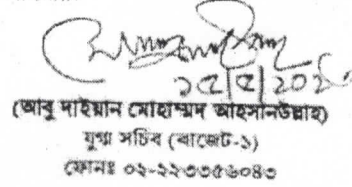 (আবু দাইয়ান মোহাম্মদ আহসানউল্লাহ)
যুগ্ম সচিব (বাজেট-১)
ফোনঃ ০২-২২৩৩৫৬০৪৩